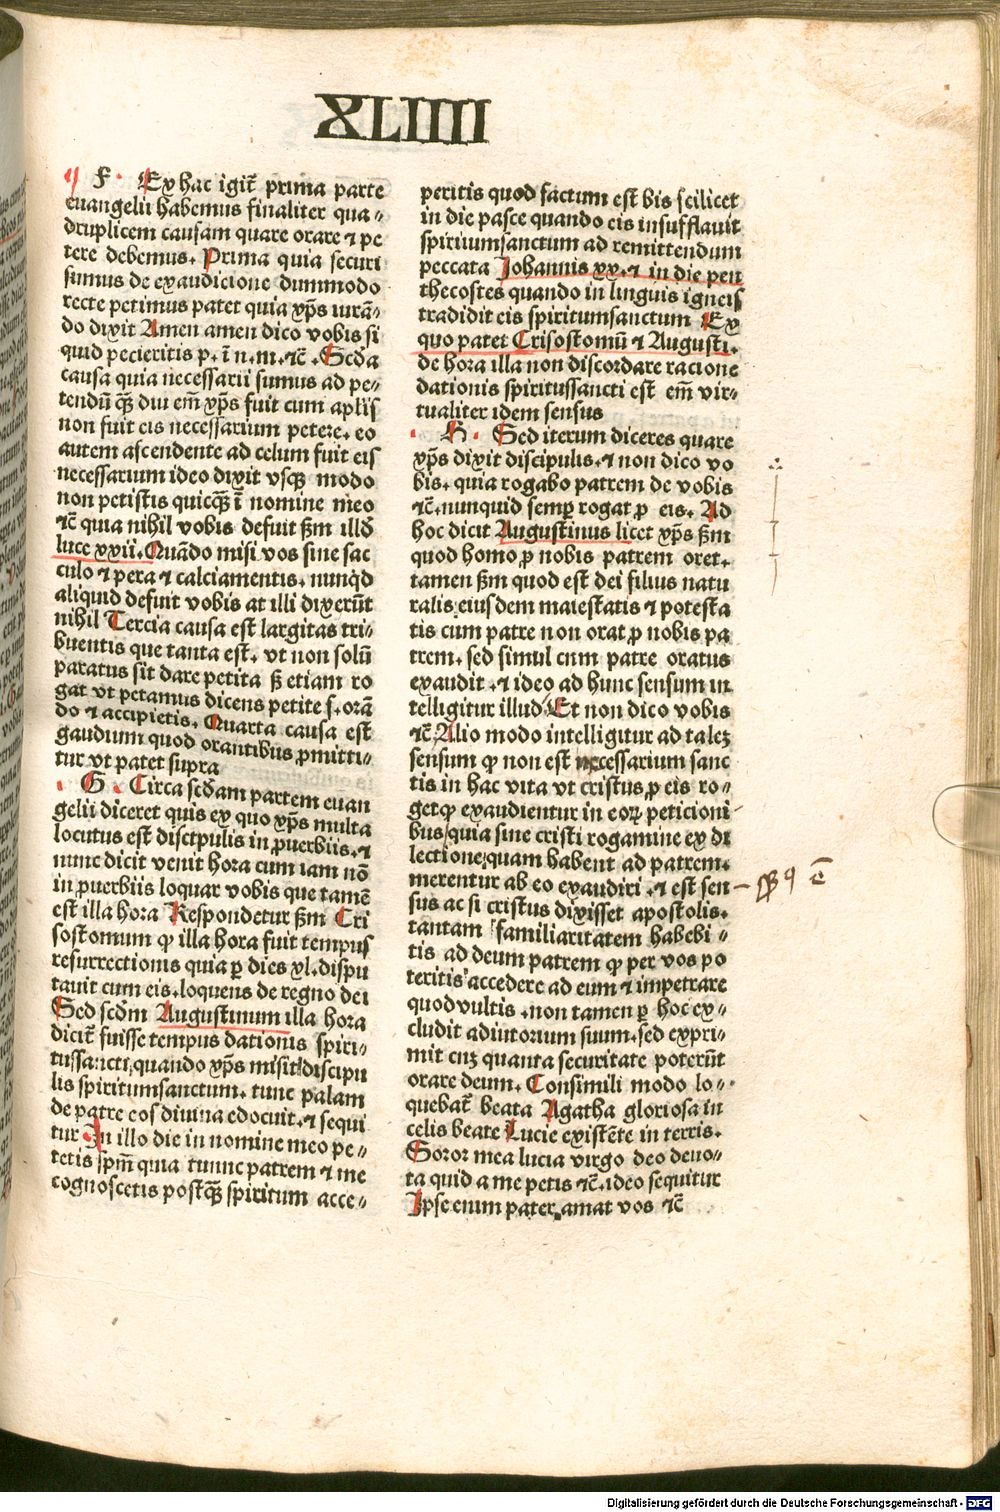 XLIIII
F. Ex hac igit̃ prima parte
euangelii habemus finaliter qua⸗
druplicem causam quare orare ⁊ pe
tere debemus. Prima quia securi
sumus de exaudicione dummodo
recte petimus patet quia xp̄s iurā⸗
do dixit Amen amen dico vobis si
quid pecieritis p. ī n. m. ⁊c̄. Scd̄a
causa quia necessarii sumus ad pe⸗
tendū qꝫ̄ diu em̄ xp̄s fuit cum apl̄is
non fuit eis necessarium petere. eo
autem ascendente ad celum fuit eis
necessarium ideo dixit vsqꝫ modo
non petistis quicqꝫ̄ ī nomine meo
⁊c̄ quia nihil vobis defuit ẜm illd̄
luce xxii. Quādo misi vos sine sac
culo ⁊ pera ⁊ calciamentis. nunqͥd
aliquid defuit vobis at illi dixerūt
nihil Tercia causa est largitas tri⸗
buentis que tanta est. vt non solū
paratus sit dare petita ẜ etiam ro
gat vt petamus dicens petite ſ. orā
do ⁊ accipietis. Quarta causa est
gaudium quod orantibus ꝓmitti⸗
tur vt patet supra
G. Circa scd̄am partem euan
gelii diceret quis ex quo xp̄s multa
locutus est discipulis in ꝓuerbiis. ⁊
nunc dicit venit hora cum iam nō
in ꝓuerbiis loquar vobis que tamē
est illa hora Respondetur ẜm Cri
sostomum ꝙ illa hora fuit tempus
resurrectionis quia ꝑ dies xl. dispu
tauit cum eis. loquens de regno dei
Sed scd̄m Augustinum illa hora
dicit̃ fuisse tempus dationis spiri⸗
tussancti quando xp̄s misit discipu
lis spiritumsanctum. tunc palam
de patre eos diuina edocuit. ⁊ sequi
tur In illo die in nomine meo pe⸗
tetis sp̄m quia tunnc patrem ⁊ me
cognoscetis postqꝫ̄ spiritum acce⸗
peritis quod factum est bis scilicet
in die pasce quando eis insufflauit
spiriiumsanctum ad remittendum
peccata Johannis xx. ⁊ in die pen
thecostes quando in linguis igneis
tradidit eis spiritumsanctum Ex
quo patet Crisostomū ⁊ Augusti.
de hora illa non discordare racione
dationis spiritussancti est em̄ vir⸗
tualiter idem sensus
H. Sed iterum diceres quare
xp̄s dixit discipulis. ⁊ non dico vo
bis. quia rogabo patrem de vobis
⁊c̄. nunquid semꝑ rogat ꝓ eis. Ad
hoc dicit Augustinus licet xp̄s ẜm
quod homo ꝓ nobis patrem oret.
tamen ẜm quod est dei filius natu
ralis. eiusdem maiestatis ⁊ potesta
tis cum patre non orat ꝓ nobis pa
trem. sed simul cnm patre oratus
exaudit. ⁊ ideo ad hunc sensum in
telligitur illud Et non dico vobis
⁊c̄ Alio modo intelligitur ad talez
sensum ꝙ non est necessarium sanc
tis in hac vita vt cristus ꝓ eis ro⸗
getꝙ exaudientur in eoꝝ peticioni
bus quia sine cristi rogamine ex di
lectione quam habent ad patrem.
merentur ab eo exaudiri. ⁊ est sen
sus ac si cristus dixisset apostolis.
tantam familiaritatem habebi⸗
tis ad deum patrem ꝙ per vos po
teritis accedere ad eum ⁊ impetrare
quod vultis. non tamen ꝑ hoc ex⸗
cludit adiutorium suum. sed expri⸗
mit cuz quanta securitate poterūt
orare deum. Consimili modo lo⸗
quebat̃ beata Agatha gloriosa in
celis beate Lucie existēte in terris.
Soror mea lucia virgo deo deuo⸗
ta quid a me petis ⁊c̄. ideo sequitur
Ipse enim pater amat vos ⁊c̄
Digitalisierung gefördert durch die Deutsche Forschungsgemeinschaft - DFG